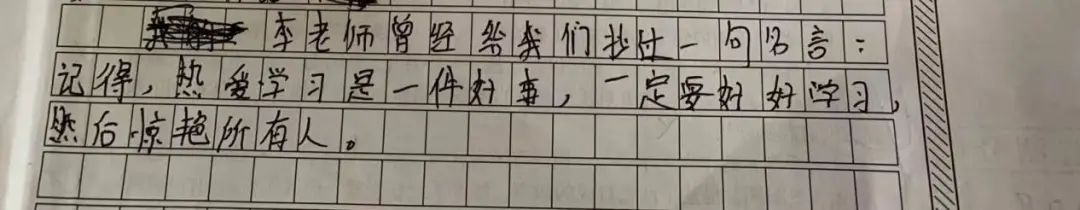 李老师曾经给我们抄过一句名言：
记得，热爱学习是一件好事，一定要好好学习，
然后惊艳所有人。